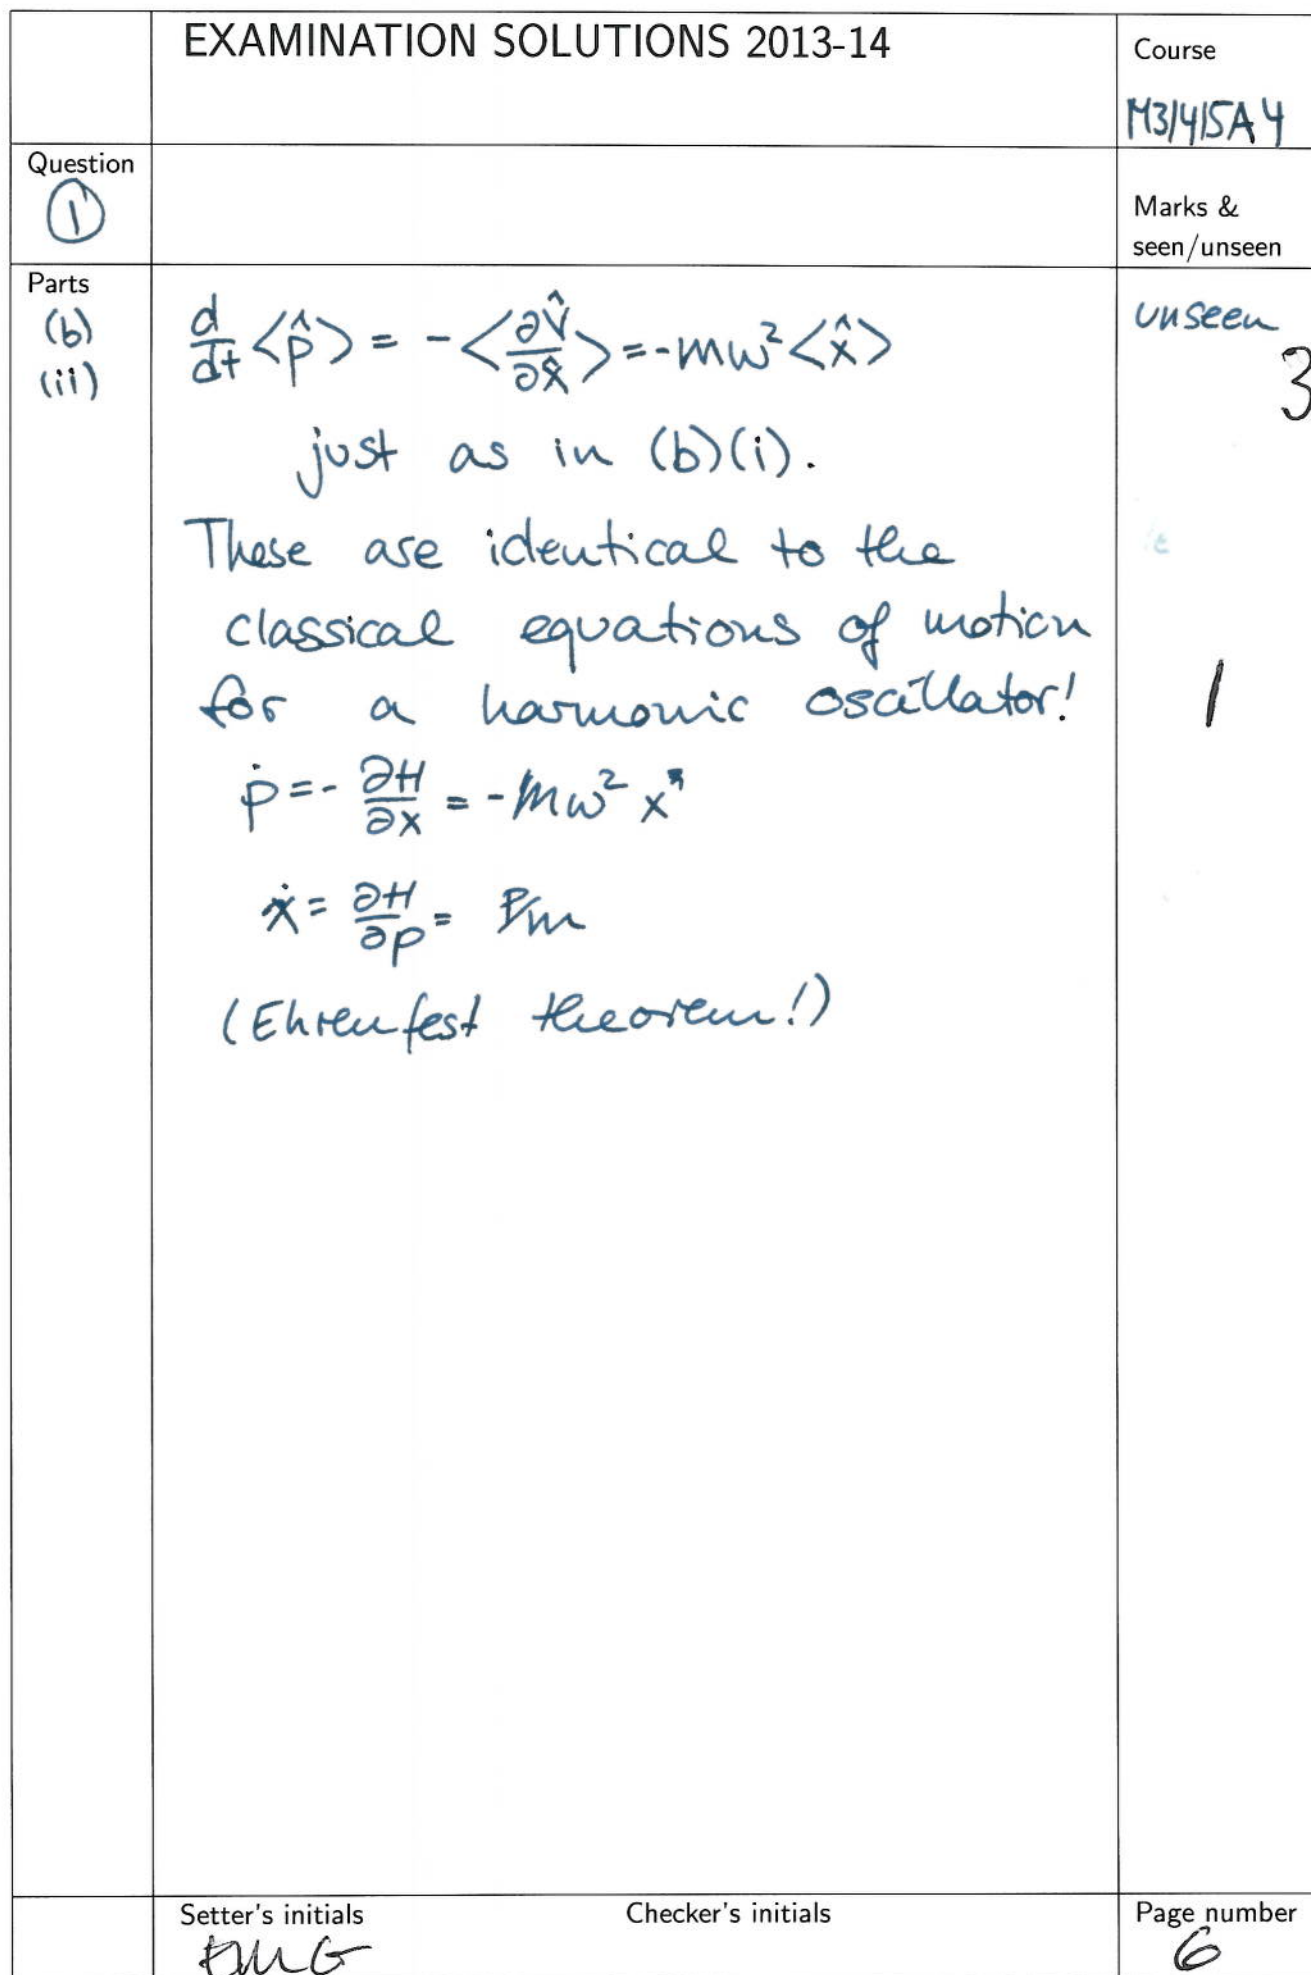 EXAMINATION SOLUTIONS 2013-14
Course
M3/4/5A4
Question
1
Marks &
seen/unseen
Parts
(b)
(ii)
d/dt <p̂> = - <∂V̂/∂x̂> = -mω² <x̂>
unseen
3
just as in (b)(i).
These are identical to the
classical equations of motion
for a harmonic oscillator!
1
ṗ = - ∂H/∂x = -mω² x
ẋ = ∂H/∂p = p/m
(Ehrenfest theorem!)
Setter's initials
Checker's initials
Page number
6